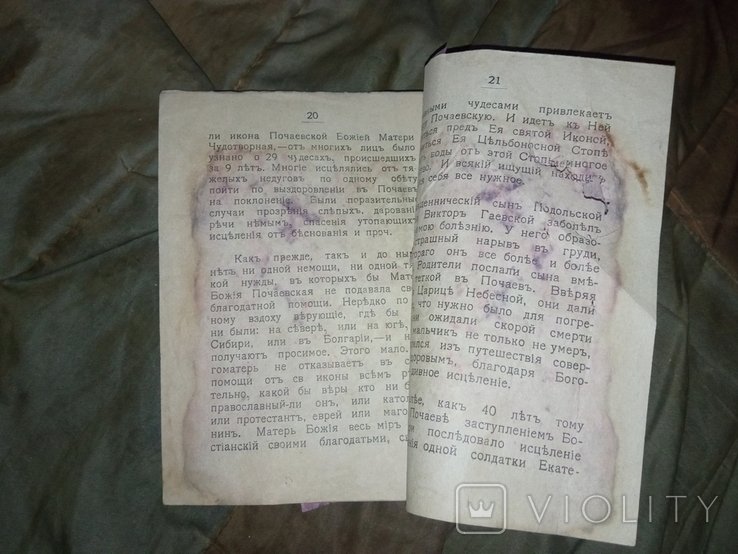 20
ли икона Почаевской Божіей Матери
Чудотворная,—отъ многихъ лицъ было
узнано о 29 чудесахъ, происшедшихъ
за 9 лѣтъ. Многіе исцѣлялись отъ тя-
желыхъ недуговъ по одному обѣту
пойти по выздоровленіи въ Почаевъ
на поклоненіе. Были поразительные
случаи прозрѣнія слѣпыхъ, дарованія
рѣчи нѣмымъ, спасенія утопающихъ
исцѣленія отъ бѣснованія и проч.
Какъ прежде, такъ и до ны
нѣтъ ни одной немощи, ни одной тя
кой нужды, въ которыхъ бы Мате
Божія Почаевская не подавала
благодатной помощи. Нерѣдко по
ному вздоху вѣрующіе, гдѣ бы
ни были: на сѣверѣ, или на югѣ,
Сибири, или въ Болгаріи,—и
получаютъ просимое. Этого мало,
гоматерь не отказываетъ въ с
помощи отъ св иконы всѣмъ р
тельно, какой бы вѣры кто ни б
православный-ли онъ, или като
или протестантъ, еврей или маго
нинъ. Матерь Божія весь міръ
стіанскій своими благодатьми, сь
21
ными чудесами привлекаетъ
Почаевскую. И идетъ къ Ней
ться предъ Ея святой Иконсй,
ться Ея Цѣльбоносной Стопѣ
воды отъ этой Стопы многое
во, И всякій ищущій находитъ
я себя все нужное.
щенническій сынъ Подольской
Викторъ Гаевской заболѣлъ
мою болѣзнію. У него образо-
трашный нарывъ въ груди,
раго онъ все болѣе и болѣе
Родители послали сына вмѣ-
теткой въ Почаевъ. Ввѣряя
Царицѣ Небесной, они дали
что нужно было для погре-
и ожидали скорой смерти
мальчикъ не только не умеръ,
лся изъ путешествія совер-
оровымъ, благодаря Бого-
дивное исцѣленіе.
ѣе, какъ 40 лѣтъ тому
Почаевѣ заступленіемъ Бо-
ри послѣдовало исцѣленіе
нія одной солдатки Екате-
VIOLITY